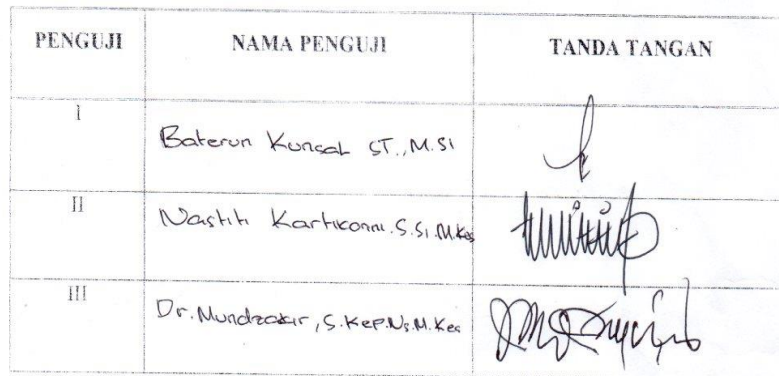 PENGUJI NAMA PENGUJI TANDA TANGAN
I Baterun Kunsah ST., M.Si
II Nastiti Kartikorini.S.Si.M.Kes
III Dr.Mundzakir, S.Kep.Ns.M.Kes